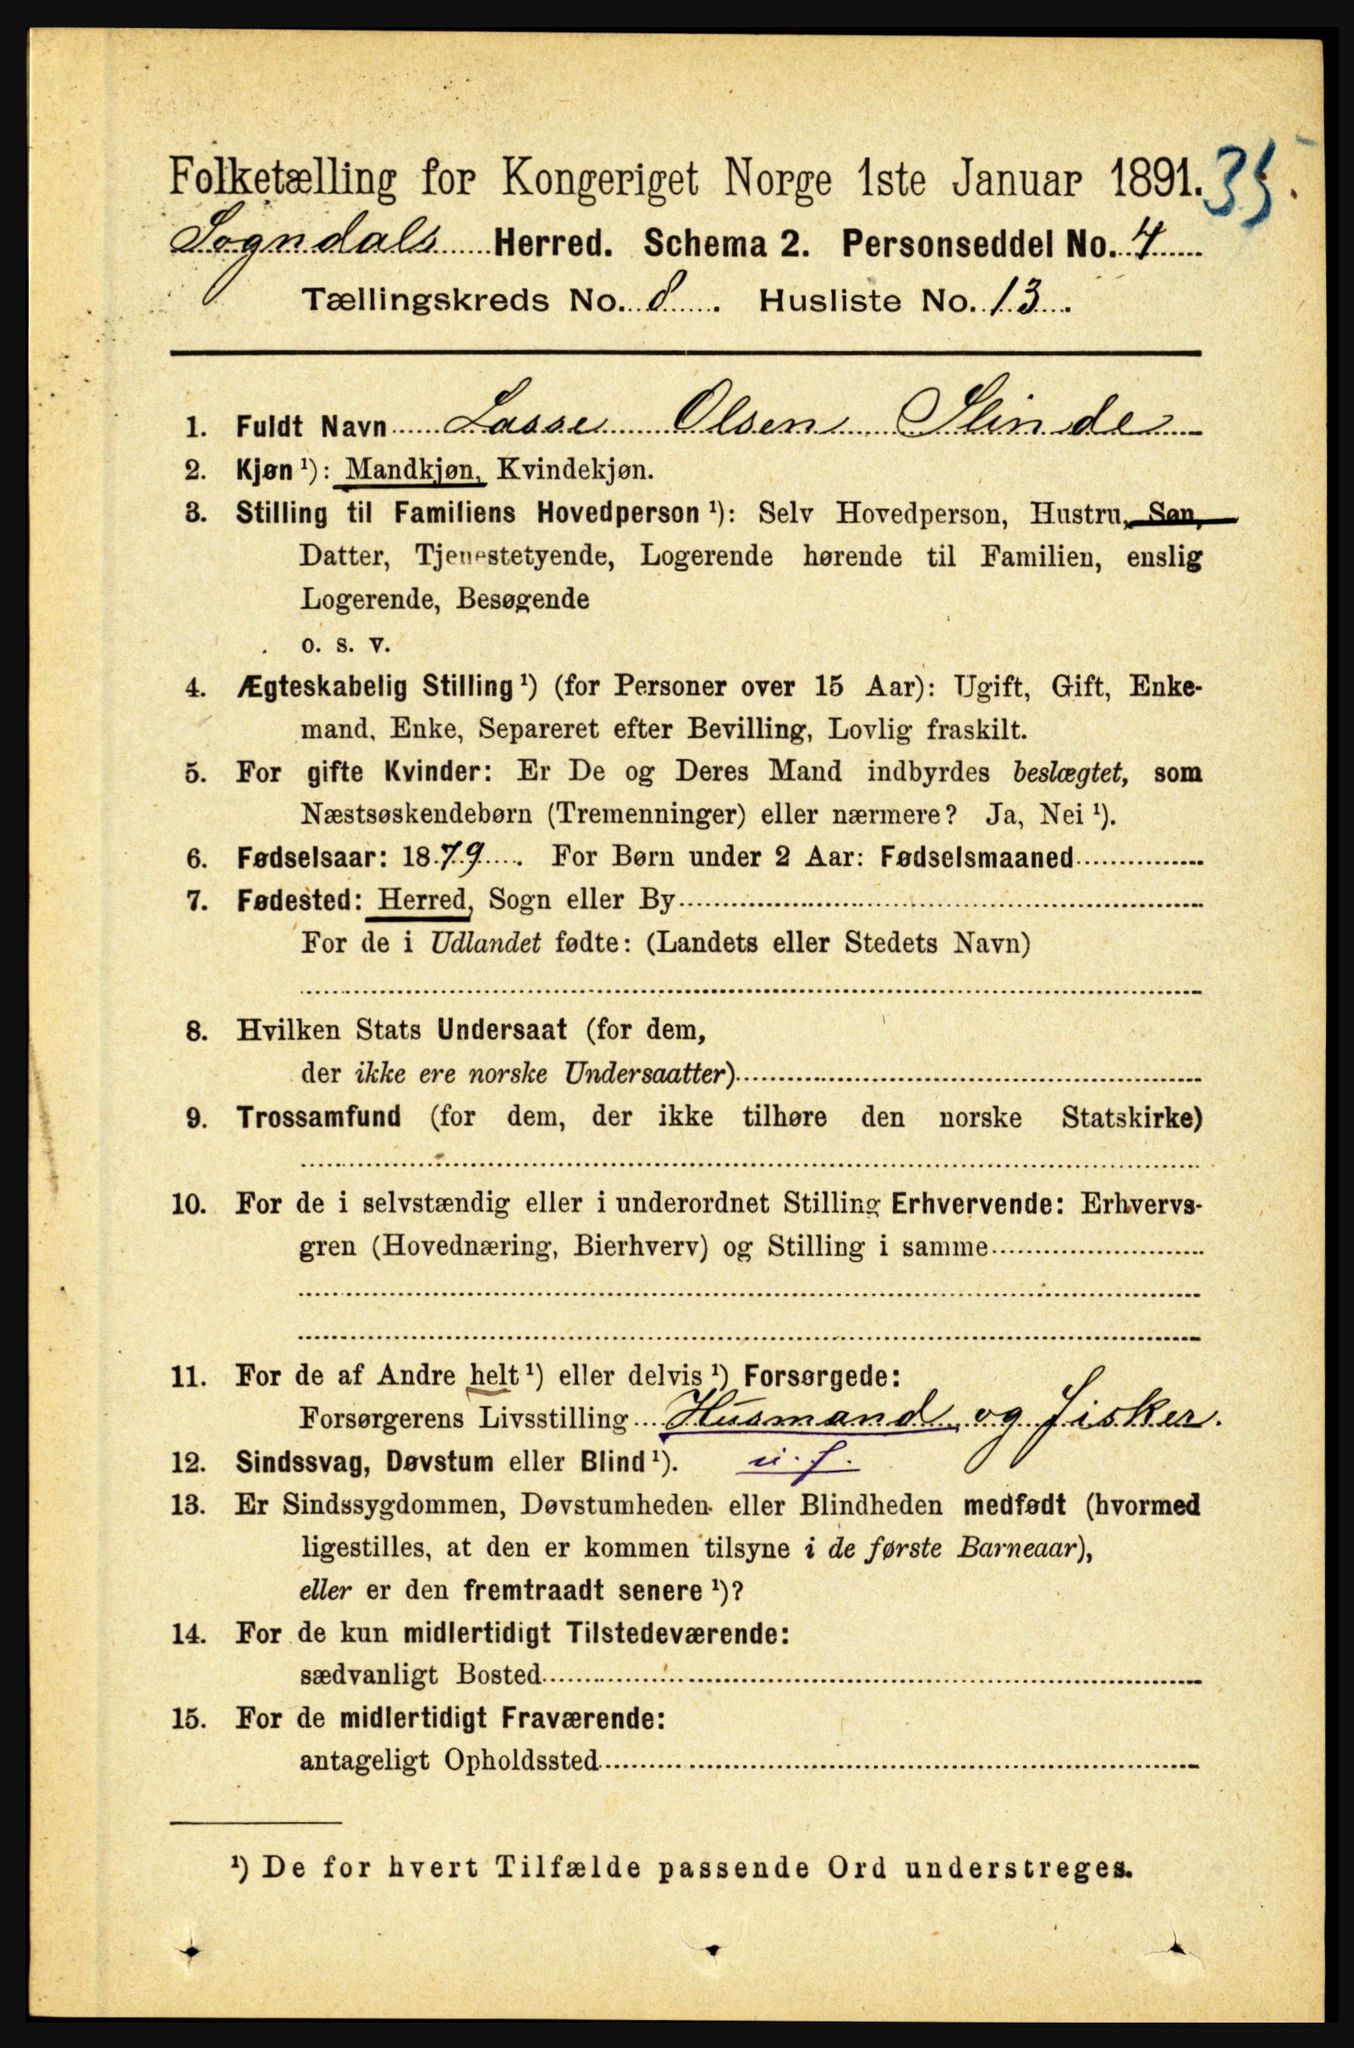 Folketælling for Kongeriget Norge 1ste Januar 1891.
35.
Sogndals Herred. Schema 2. Personseddel No. 4
Tællingskreds No. 8. Husliste No. 13.
1. Fuldt Navn Lasse Olsen Slinde
2. Kjøn ¹): Mandkjøn, Kvindekjøn.
3. Stilling til Familiens Hovedperson ¹): Selv Hovedperson, Hustru, Søn,
Datter, Tjenestetyende, Logerende hørende til Familien, enslig
Logerende, Besøgende
o. s. v.
4. Ægteskabelig Stilling ¹) (for Personer over 15 Aar): Ugift, Gift, Enke-
mand, Enke, Separeret efter Bevilling, Lovlig fraskilt.
5. For gifte Kvinder: Er De og Deres Mand indbyrdes beslægtet, som
Næstsøskendebørn (Tremenninger) eller nærmere? Ja, Nei ¹).
6. Fødselsaar: 1879. For Børn under 2 Aar: Fødselsmaaned
7. Fødested: Herred, Sogn eller By
For de i Udlandet fødte: (Landets eller Stedets Navn)
8. Hvilken Stats Undersaat (for dem,
der ikke ere norske Undersaatter)
9. Trossamfund (for dem, der ikke tilhøre den norske Statskirke)
10. For de i selvstændig eller i underordnet Stilling Erhvervende: Erhvervs-
gren (Hovednæring, Bierhverv) og Stilling i samme
11. For de af Andre helt ¹) eller delvis ¹) Forsørgede:
Forsørgerens Livsstilling Husmand og Fisker.
12. Sindssvag, Døvstum eller Blind ¹). u. f.
13. Er Sindssygdommen, Døvstumheden eller Blindheden medfødt (hvormed
ligestilles, at den er kommen tilsyne i de første Barneaar),
eller er den fremtraadt senere ¹)?
14. For de kun midlertidigt Tilstedeværende:
sædvanligt Bosted
15. For de midlertidigt Fraværende:
antageligt Opholdssted
¹) De for hvert Tilfælde passende Ord understreges.